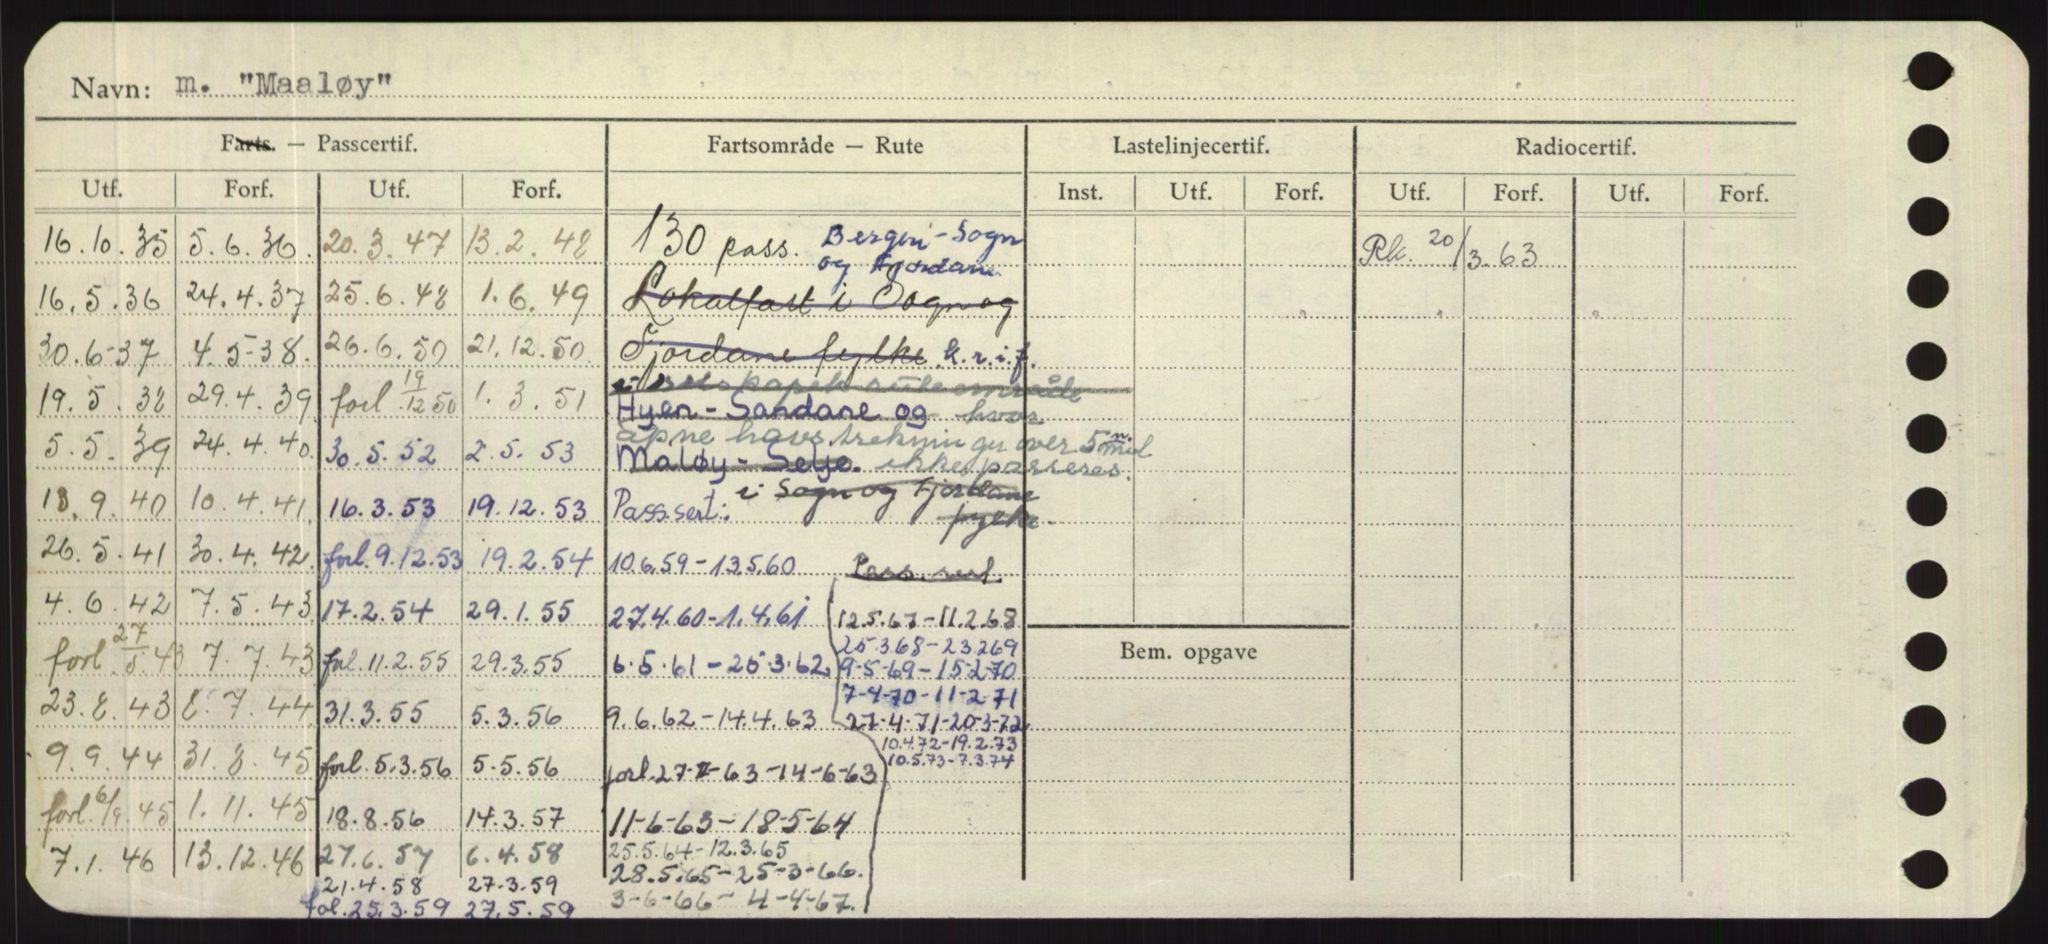 Navn: m. "Maaløy"
Farts. — Passcertif. Fartsområde — Rute Lastelinjecertif. Radiocertif.
Utf. Forf. Utf. Forf. Inst. Utf. Forf. Utf. Forf. Utf. Forf.
16.10.35 5.6.36. 20.3.47 13.2.48 130 pass. Bergen-Sogn og Fjordane Rk. 20/3.63
16.5.36 24.4.37 25.6.48 1.6.49 Lokalfart i Sogn og
30.6-37 4.5-38. 26.6.50 21.12.50. Fjordane fylke. k.r.i.f.
i selskapets ruteområde
19.5.38 29.4.39 forl 19/12 50 1.3.51 Hyen-Sandane og hvor
åpne havstrekninger over 5 n. mil
5.5.39 24.4.40. 30.5.52 2.5.53 Måløy-Selje. ikke passeres.
i Sogn og Fjordane fylke.
18.9.40 10.4.41. 16.3.53 19.12.53 Passsert:
26.5.41 30.4.42. forl.9.12.53 19.2.54 10.6.59-13.5.60 Pass.sert.
4.6.42 7.5.43 17.2.54 29.1.55 27.4.60-1.4.61 12.5.67-11.2.68
25.3.68-23.2.69
forl. 27/5.43 7.7.43 forl.11.2.55 29.3.55 6.5.61-25.3.62 9-5-69-15-2-70
7-4-70-11-2-71
23.8.43 8.7.44 31.3.55 5.3.56 9.6.62-14.4.63 27-4-71-20-3-72.
10.4.72-19.2.73
10.5.73-7.3.74
9.9.44 31.8.45 forl.5.3.56 5.5.56 forl.27-3-63-14-6-63
forl.6/9.45 1.11.45 18.8.56 14.3.57 11-6-63-18-5-64
7.1.46 13.12.46 27.6.57 6.4.58 25.5.64-12.3.65
21.4.58 27.3.59 28.5.65-25-3-66.
fol.25.3.59 27.5.59 3-6-66-4-4-67.
Bem. opgave